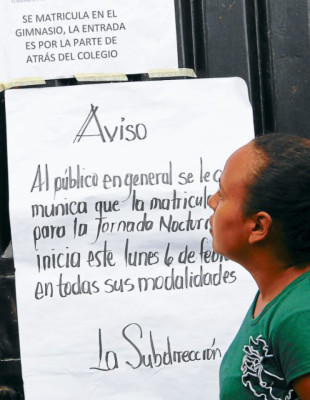 SE MATRICULA EN EL
GIMNASIO, LA ENTRADA
ES POR LA PARTE DE
ATRÁS DEL COLEGIO
Aviso
Al público en general se le
munica que la matricul
para la Jornada Noctur
inicia este lunes 6 de feb
en todas sus modalidades
La Subdirección